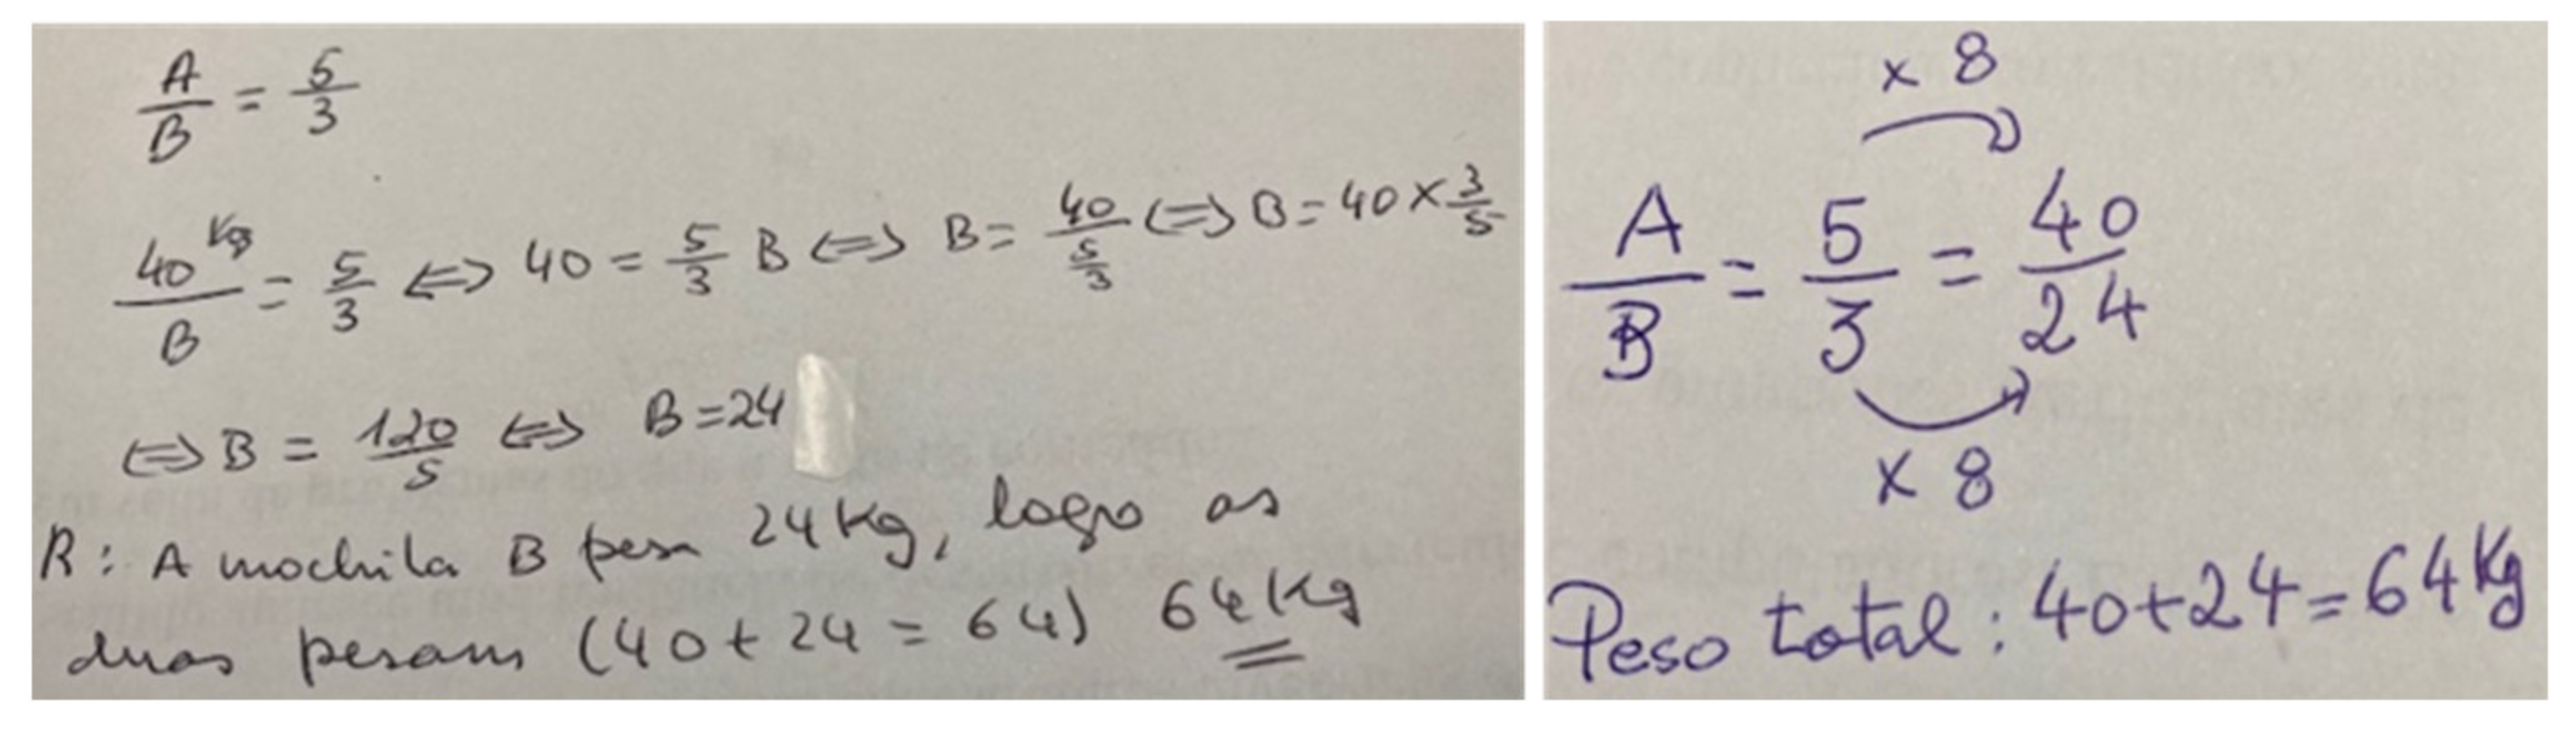 A/B = 5/3
40 Kg/B = 5/3 ⟺ 40 = 5/3 B ⟺ B = 40/(5/3) ⟺ B = 40 × 3/5
⟺ B = 120/5 ⟺ B = 24
R: A mochila B pesa 24 Kg, logo as
duas pesam (40 + 24 = 64) 64 Kg
× 8
A/B = 5/3 = 40/24
× 8
Peso total: 40 + 24 = 64 Kg